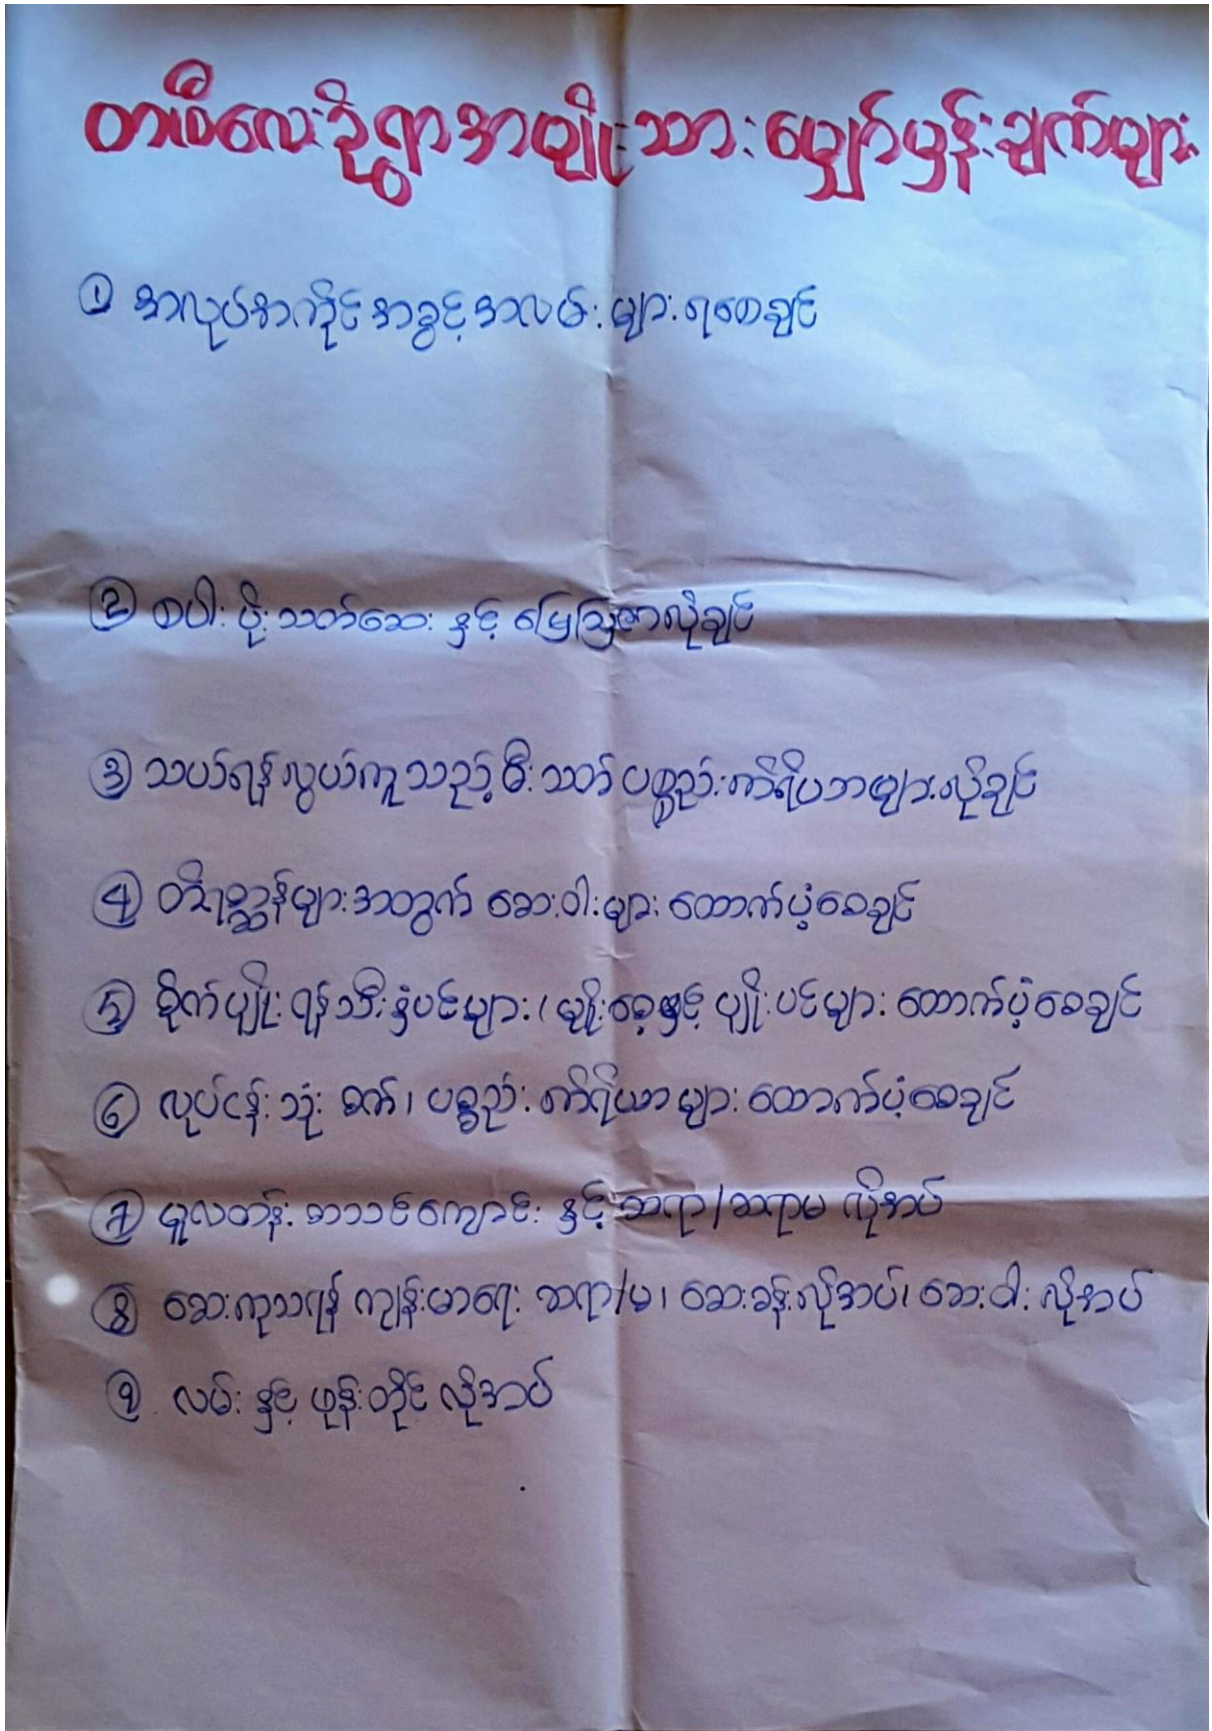 တမီလေးဒိုရွာအမျိုးသားမျှော်မှန်းချက်များ
① အလုပ်အကိုင်အခွင့်အလမ်းများရစေချင်
② စပါးပိုးသတ်ဆေးနှင့် မြေဩဇာလိုချင်
③ သယ်ရန်လွယ်ကူသည့်မီးသတ်ပစ္စည်းကိရိပဘများလိုချင်
④ တိရစ္ဆာန်များအတွက် ဆေးဝါးများ ထောက်ပံ့စေချင်
⑤ စိုက်ပျိုးရန်သီးနှံပင်များ၊ မျိုးစေ့နှင့် ပျိုးပင်များ ထောက်ပံ့စေချင်
⑥ လုပ်ငန်းသုံး စက်၊ ပစ္စည်းကိရိယာများ ထောက်ပံ့စေချင်
⑦ မူလတန်းစာသင်ကျောင်း နှင့် ဆရာ/ဆရာမ လိုအပ်
⑧ ဆေးကုသရန် ကျန်းမာရေး ဆရာ/မ၊ ဆေးခန်းလိုအပ်၊ ဆေးဝါး လိုအပ်
⑨ လမ်း နှင့် ဖုန်းတိုင် လိုအပ်